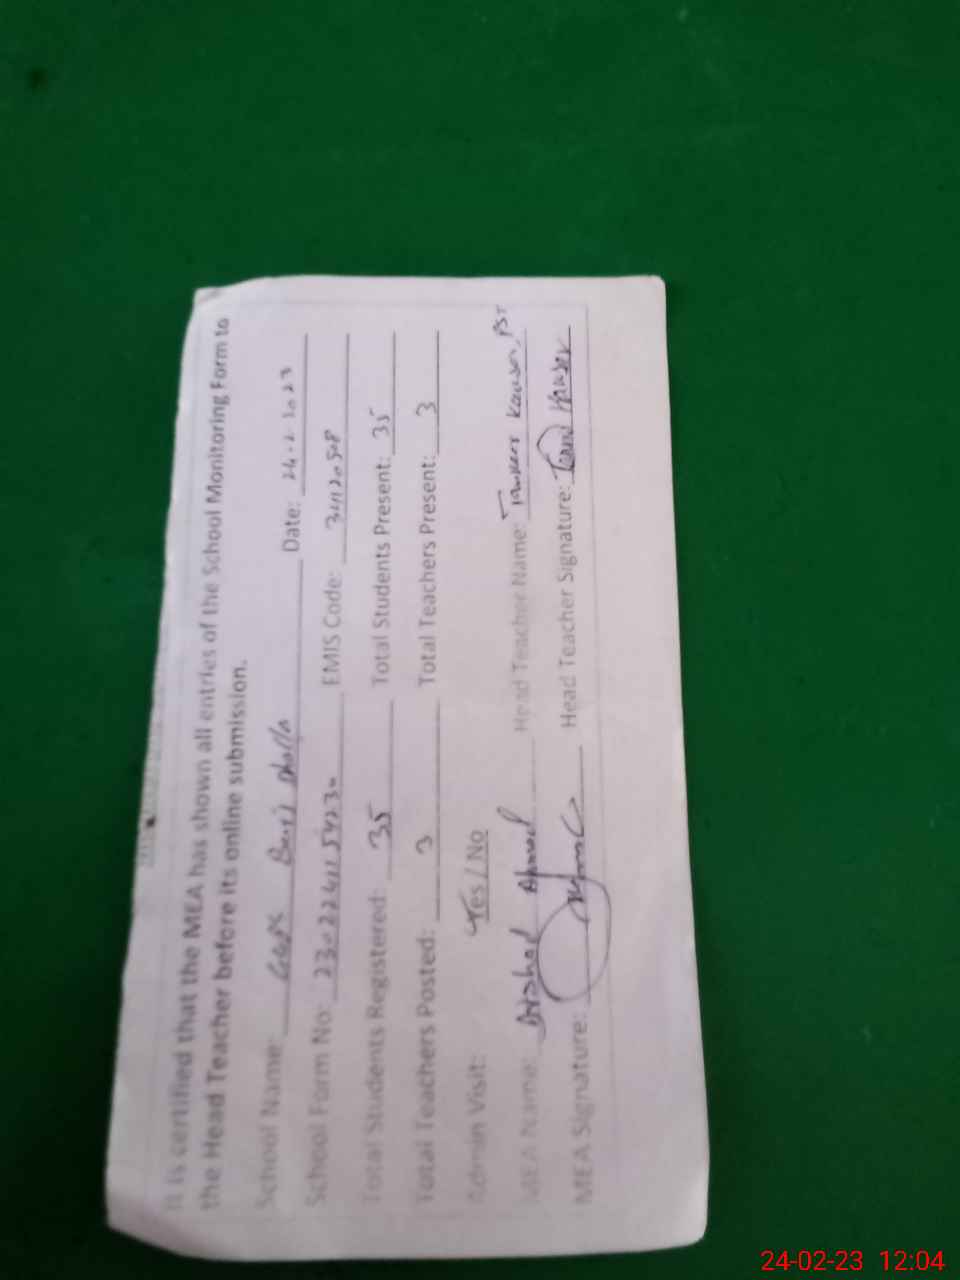 It is certified that the MEA has shown all entries of the School Monitoring Form to
the Head Teacher before its online submission.
School Name: Date: 24-2-2023
School Form No: EMIS Code:
Total Students Registered: 35 Total Students Present: 35
Total Teachers Posted: 3 Total Teachers Present: 3
Admin Visit: Yes / No
MEA Name: Arshad Ahmad Head Teacher Name: Kausar, PST
MEA Signature: Head Teacher Signature: Kauser
24-02-23 12:04